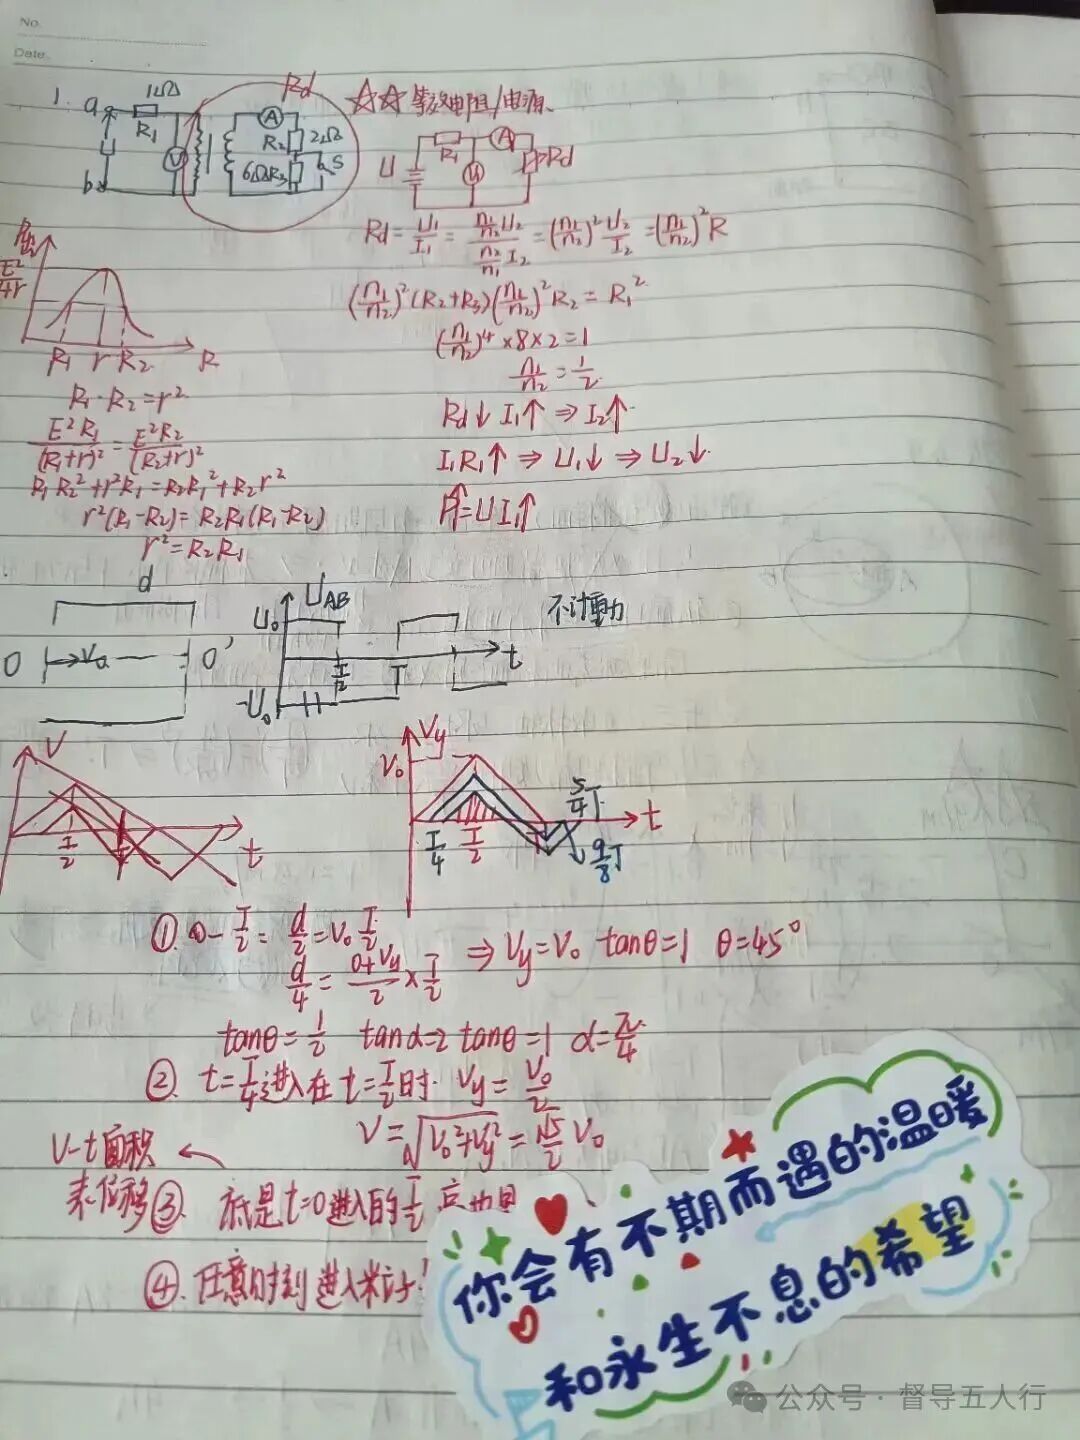 No.
Date.
1. a 1Ω R₁ V A R₂ 2Ω 6Ω R₃ S b Rd
☆☆等效电阻/电源
U R₁ V A Rd
Rd = U₁/I₁ = (n₁/n₂ U₂)/(n₂/n₁ I₂) = (n₁/n₂)² U₂/I₂ = (n₁/n₂)² R
(n₁/n₂)²(R₂+R₃)(n₁/n₂)²R₂ = R₁²
(n₁/n₂)⁴×8×2=1
n₁/n₂ = 1/2
Rd↓ I₁↑ ⇒ I₂↑
I₁R₁↑ ⇒ U₁↓ ⇒ U₂↓
P↑=UI₁↑
E²/4r
R₁ r R₂ R
R₁·R₂=r²
E²R₁/(R₁+r)² = E²R₂/(R₂+r)²
R₁R₂²+r²R₁=R₂R₁²+R₂r²
r²(R₁-R₂)=R₂R₁(R₁-R₂)
r²=R₂R₁
d
O V₀ O'
U_AB U₀ -U₀ T/2 T t
不计重力
V T/2 T t
Vy V₀ T/4 T/2 5/4T 9/8T t
① 0-T/2: d/2=V₀ T/2
d/4 = (0+Vy)/2 × T/2 ⇒ Vy=V₀ tanθ=1 θ=45°
tanθ=1/2 tanα=2 tanθ=1 α=π/4
② t=T/4进入在t=T/2时. Vy=V₀/2
V=√(V₀²+Vy²)=√5/2 V₀
V-t面积 ←
表位移
③ 就是t=0进入的T/2
④ 任意时刻进入粒子
你会有不期而遇的温暖
和永生不息的希望
公众号 · 督导五人行